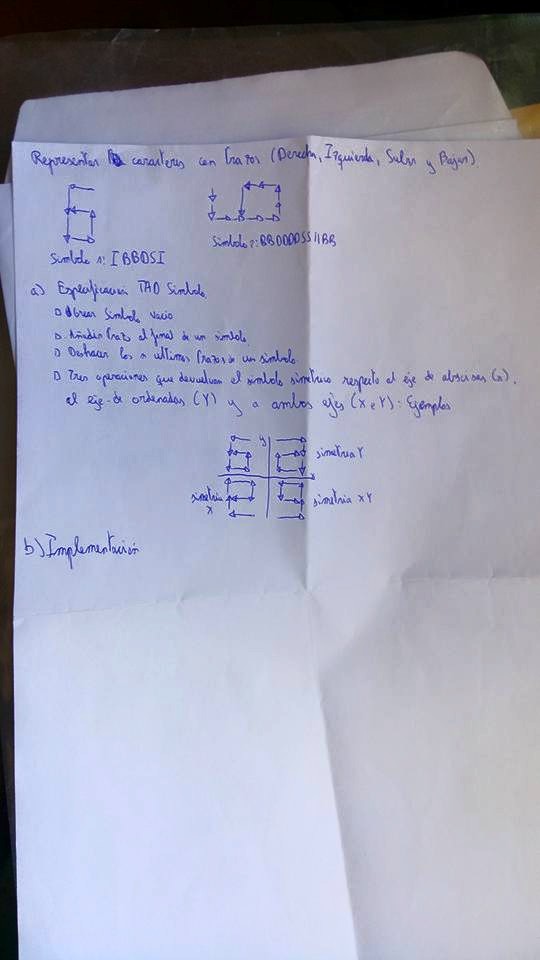 Representar caracteres con trazos (Derecha, Izquierda, Subir y Bajar)
Simbolo 1: IBBDSI
Simbolo 2: BBDDDSSIIBB
a) Especificación TAD Simbolo.
Crear Simbolo vacio
Añadir trazo al final de un simbolo.
Deshacer los n ultimos trazos de un simbolo.
Tres operaciones que devuelvan el simbolo simetrico respecto al eje de abscisas (x),
el eje de ordenadas (Y) y a ambos ejes (X e Y): Ejemplos
y
simetria Y
x
simetria
X
simetria XY
b) Implementación